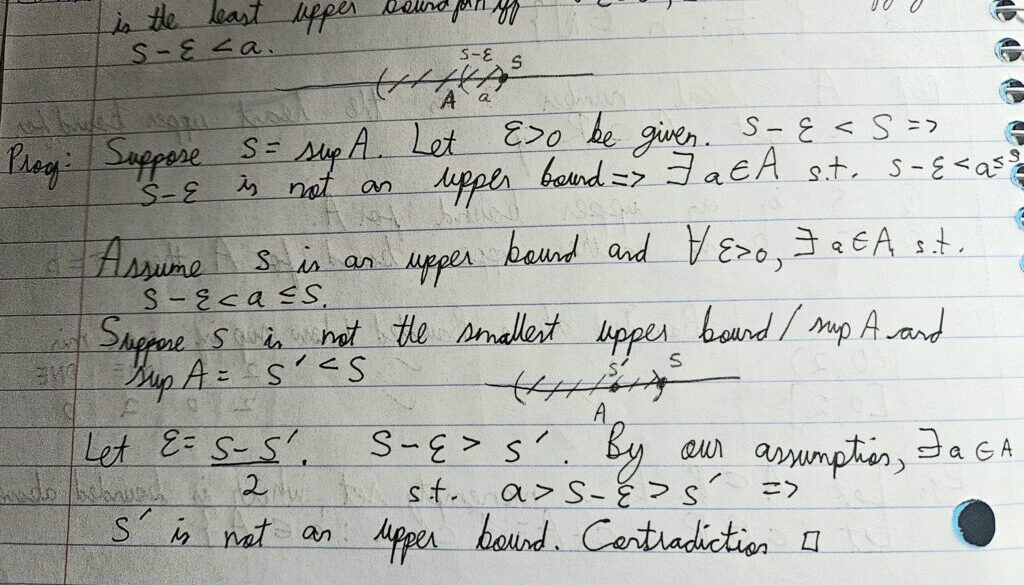 is the least upper bound for iff
S-ε<a.
S-ε S
A a
Proof: Suppose S = sup A. Let ε>0 be given. S-ε < S =>
S-ε is not an upper bound => ∃ a∈A s.t. S-ε<a≤s
Assume s is an upper bound and ∀ ε>0, ∃ a∈A, s.t.
S-ε<a≤S.
Suppose s is not the smallest upper bound/sup A and
sup A = S' <S
S' S
A
Let ε= (S-S')/2. S-ε > S'. By our assumption, ∃ a∈A
s.t. a>S-ε>s' =>
S' is not an upper bound. Contradiction □